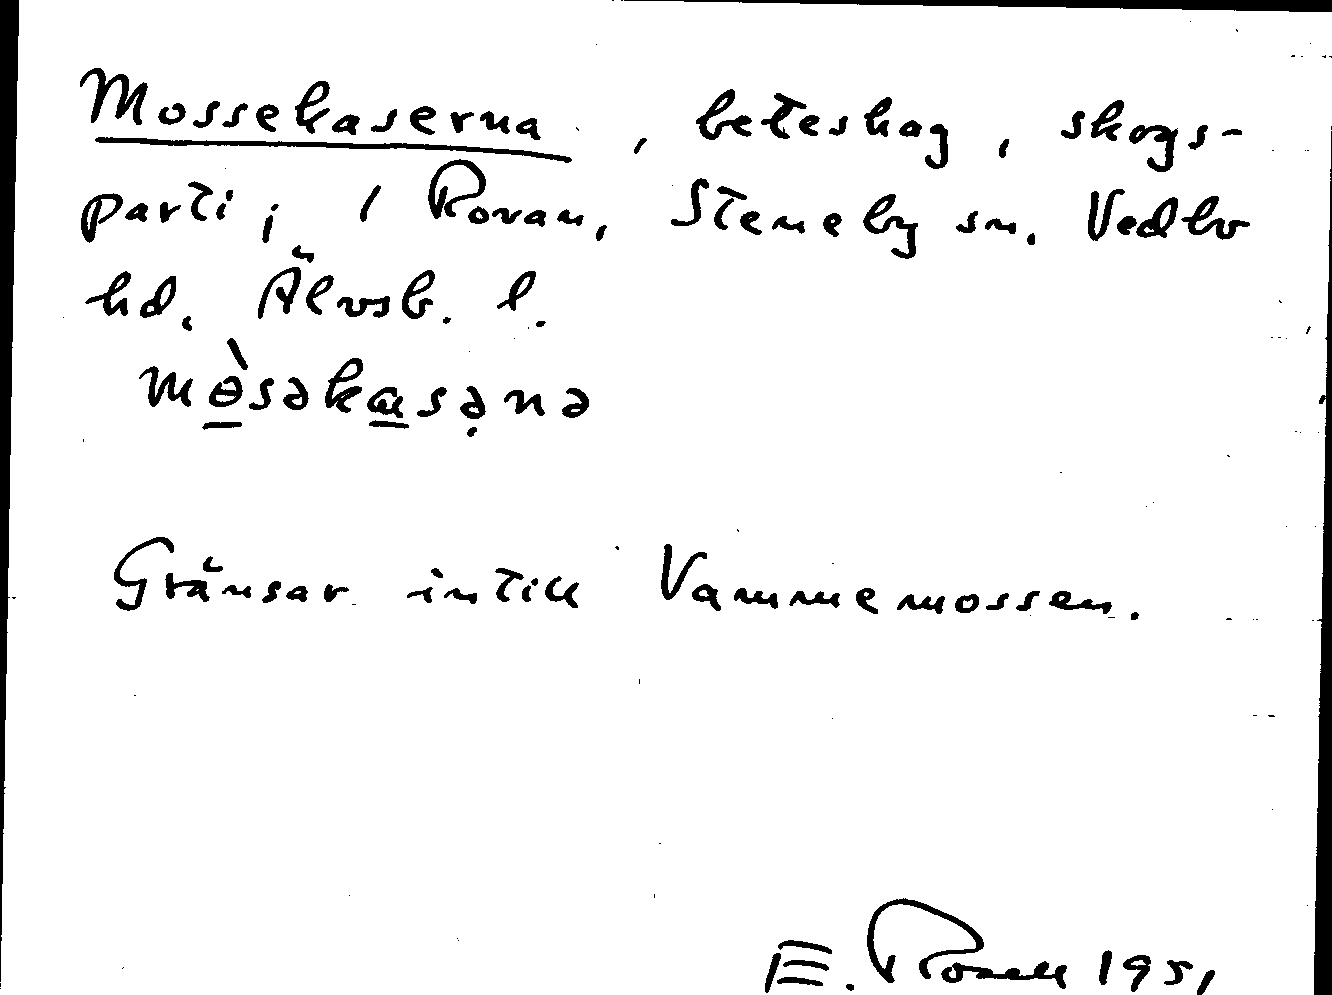 Mossekaserna, beteshag, skogs-
parti; 1 Rovan, Steneby sn. Vedbo
hd. Älvsb. l.
mɵ̀səkasə̣nə
Gränsar intill Vammemossen.
E. Rosell 1951